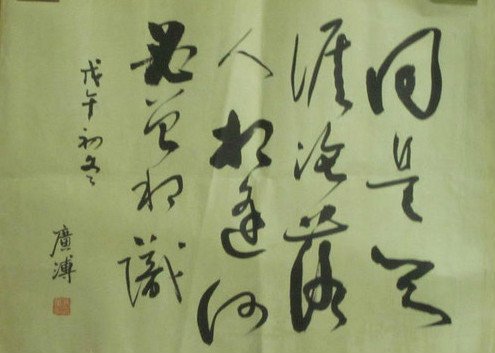 同是天
涯淪落
人相逢何
必曾相識
戊午初冬
廣溥